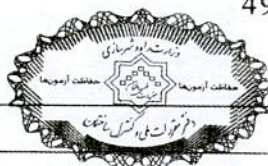 49
وزارت راه و شهرسازی
حفاظت آزمون‌ها
حفاظت آزمون‌ها
دفتر مقررات ملی و کنترل ساختمان